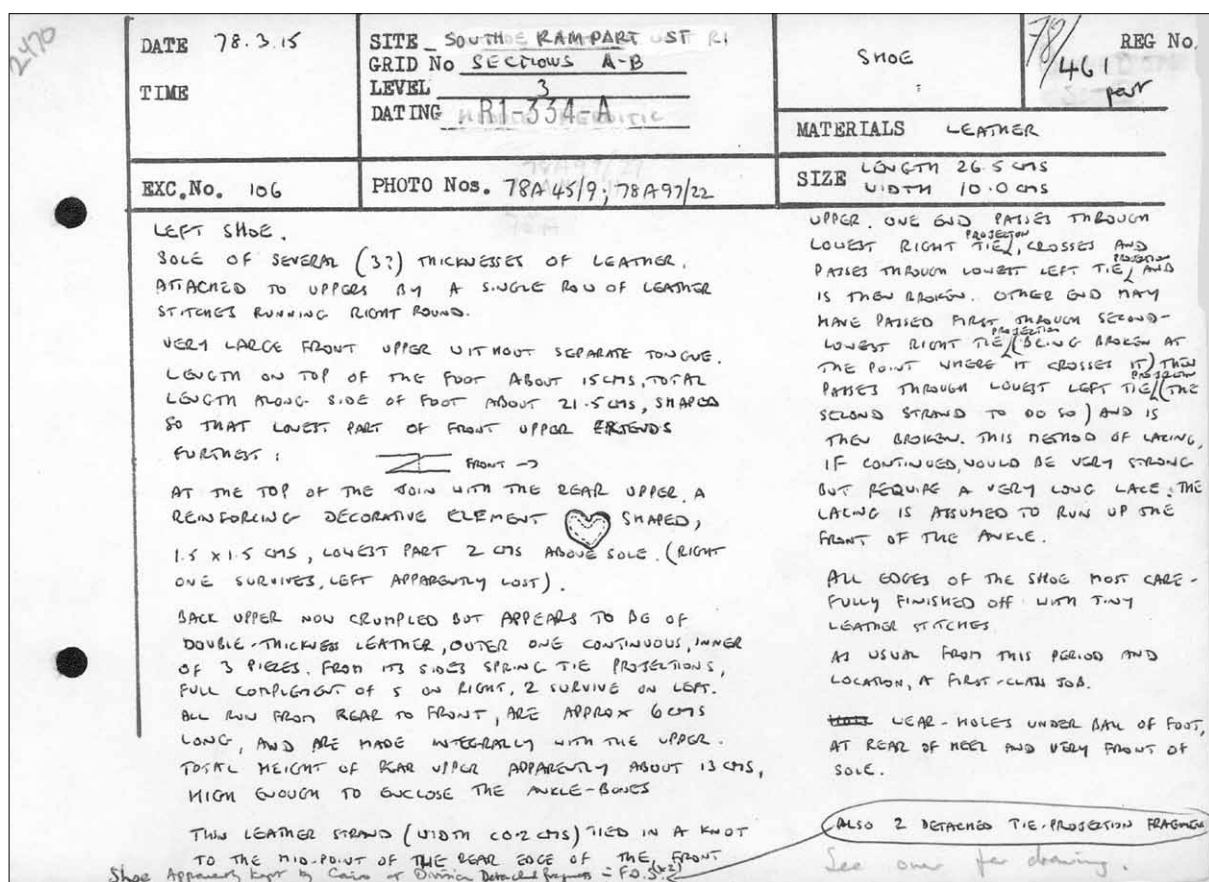 2470
DATE 78.3.15
TIME
SITE SOUTH RAMPART ST R1
GRID No SECTIONS A-B
LEVEL 3
DATING R1-334-A
SHOE
78/461 part
REG No.
MATERIALS LEATHER
EXC.No. 106
PHOTO Nos. 78A45/9; 78A97/22
SIZE LENGTH 26.5 CMS
WIDTH 10.0 CMS
LEFT SHOE.
SOLE OF SEVERAL (3?) THICKNESSES OF LEATHER,
ATTACHED TO UPPERS BY A SINGLE ROW OF LEATHER
STITCHES RUNNING RIGHT ROUND.
VERY LARGE FRONT UPPER WITHOUT SEPARATE TONGUE.
LENGTH ON TOP OF THE FOOT ABOUT 15 CMS, TOTAL
LENGTH ALONG SIDE OF FOOT ABOUT 21.5 CMS, SHAPED
SO THAT LOWEST PART OF FRONT UPPER EXTENDS
FURTHEST:
FRONT ->
AT THE TOP OF THE JOIN WITH THE REAR UPPER, A
REINFORCING DECORATIVE ELEMENT SHAPED,
1.5 x 1.5 CMS, LOWEST PART 2 CMS ABOVE SOLE. (RIGHT
ONE SURVIVES, LEFT APPARENTLY LOST).
BACK UPPER NOW CRUMPLED BUT APPEARS TO BE OF
DOUBLE-THICKNESS LEATHER, OUTER ONE CONTINUOUS, INNER
OF 3 PIECES. FROM ITS SIDES SPRING TIE PROJECTIONS,
FULL COMPLEMENT OF 5 ON RIGHT, 2 SURVIVE ON LEFT.
ALL RUN FROM REAR TO FRONT, ARE APPROX 6 CMS
LONG, AND ARE MADE INTEGRALLY WITH THE UPPER.
TOTAL HEIGHT OF REAR UPPER APPARENTLY ABOUT 13 CMS,
HIGH ENOUGH TO ENCLOSE THE ANKLE-BONES
THIN LEATHER STRAND (WIDTH C0.2 CMS) TIED IN A KNOT
TO THE MID-POINT OF THE REAR EDGE OF THE FRONT
Shoe Apparently kept by Cairo at Division Detached fragments = F.D.S. (x2)
UPPER. ONE END PASSES THROUGH
LOWEST RIGHT TIE PROJECTION, CROSSES AND
PASSES THROUGH LOWEST LEFT TIE PROJECTION AND
IS THEN BROKEN. OTHER END MAY
HAVE PASSED FIRST THROUGH SECOND-
LOWEST RIGHT TIE PROJECTION (BEING BROKEN AT
THE POINT WHERE IT CROSSES IT) THEN
PASSES THROUGH LOWEST LEFT TIE PROJECTION (THE
SECOND STRAND TO DO SO) AND IS
THEN BROKEN. THIS METHOD OF LACING,
IF CONTINUED, WOULD BE VERY STRONG
BUT REQUIRE A VERY LONG LACE. THE
LACING IS ASSUMED TO RUN UP THE
FRONT OF THE ANKLE.
ALL EDGES OF THE SHOE MOST CARE-
FULLY FINISHED OFF WITH TINY
LEATHER STITCHES.
AS USUAL FROM THIS PERIOD AND
LOCATION, A FIRST-CLASS JOB.
WEAR-HOLES UNDER BALL OF FOOT,
AT REAR OF HEEL AND VERY FRONT OF
SOLE.
ALSO 2 DETACHED TIE-PROJECTION FRAGMEN
See over for drawing.